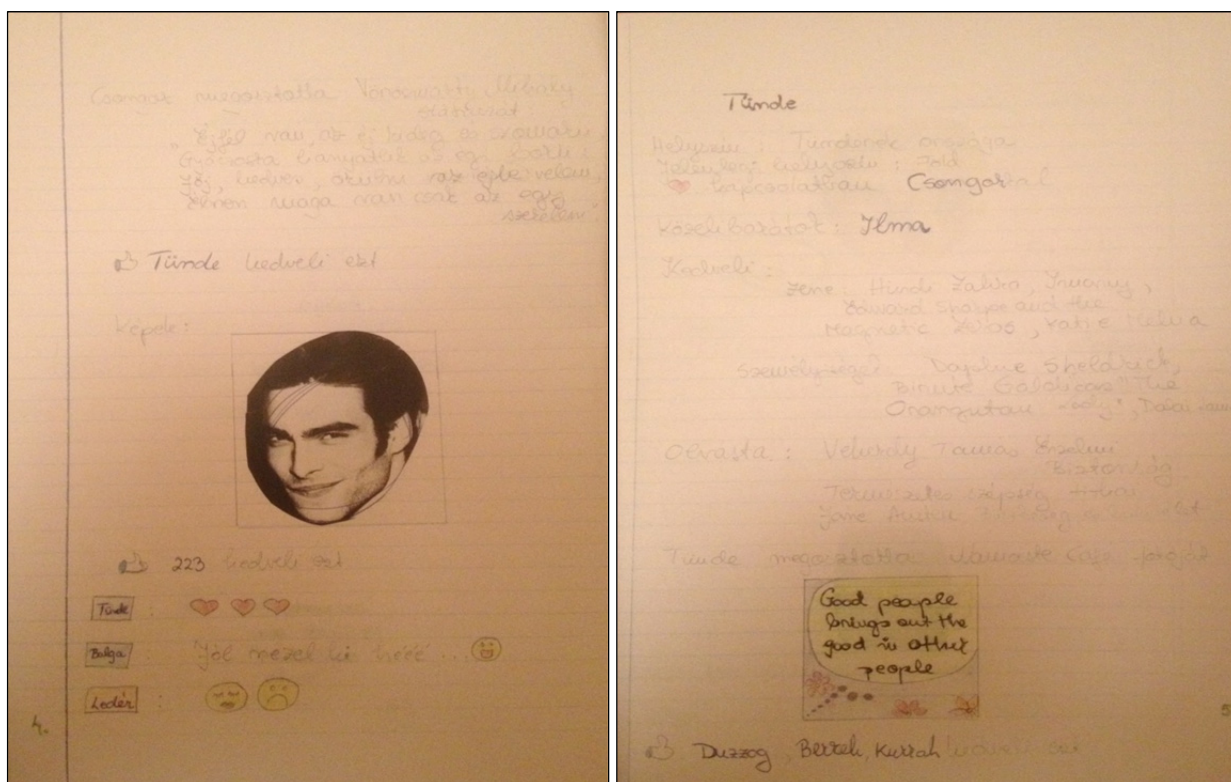 Csongor megosztotta Vörösmarty Mihály
"Éjfél van, az éj rideg és szomorú,
Gyászosra hanyatlik az égi ború:
Jőj, kedves, örülni az éjbe velem,
Ébren maga van csak az egy
szerelem."
Tünde kedveli ezt
Képek:
223 kedveli ezt
Tünde :
Balga : Jól nézel ki hééé ...
Ledér :
4.
Tünde
Helyszín : Tündérek országa
Jelenlegi helyszín : Föld
kapcsolatban Csongorral
Közeli barátok : Ilma
Kedveli :
Zene : Hindi Zahra, Irie
Edward Sharpe and the
Magnetic Zeros, Katie Melua
Személyiségek : Daphne Sheldrick,
Birute Galdicas "The
Orangutan Lady", Dalai
Olvasta : Vekerdy Tamás Érzelmi
Biztonság
Természetes szépség
Jane Austen
Tünde megosztotta Namaste Café
Good people
brings out the
good in other
people
Duzzog, Berreh, Kurrah kedveli ezt
5